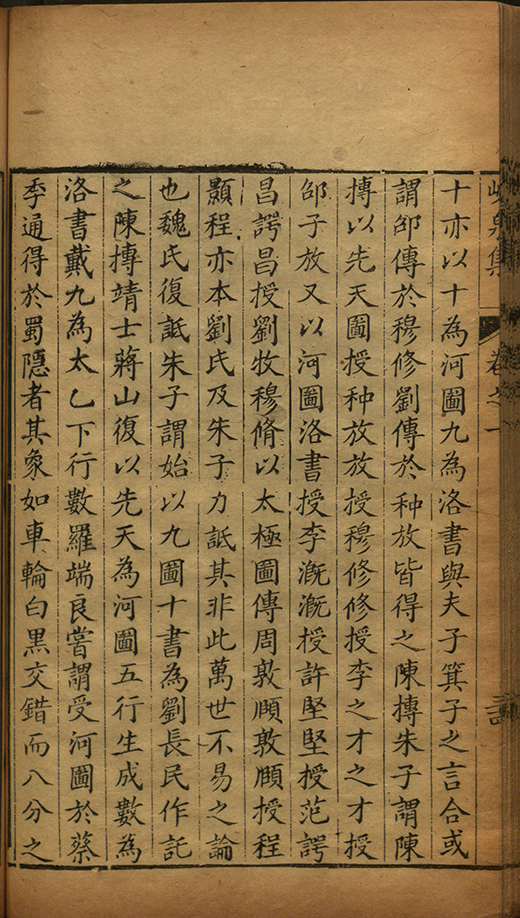 峴泉集 卷之一
十亦以十為河圖九為洛書與夫子箕子之言合或
謂邵傳於穆修劉傳於种放皆得之陳摶朱子謂陳
摶以先天圖授种放放授穆修修授李之才之才授
邵子放又以河圖洛書授李溉溉授許堅堅授范諤
昌諤昌授劉牧穆脩以太極圖傳周敦頤敦頤授程
顥程亦本劉氏及朱子力詆其非此萬世不易之論
也魏氏復詆朱子謂始以九圖十書為劉長民作託
之陳摶靖士蔣山復以先天為河圖五行生成數為
洛書戴九為太乙下行數羅端良嘗謂受河圖於蔡
季通得於蜀隱者其象如車輪白黑交錯而八分之